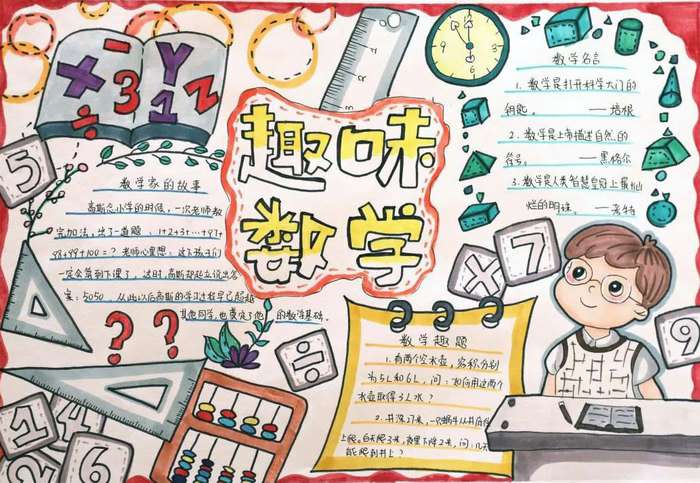 趣味
数学
×
-
3
÷
Y
1
Z
5
数学家的故事
高斯念小学的时候,一次老师教
完加法,出了一道题,1+2+3+…+97+
98+99+100=?老师心里想,这下孩子们
一定会算到下课了,这时,高斯却起立说出答
案:5050,从此以后高斯的学习过程早已超越
其他同学,也奠定了他 的数学基础。
数学名言
1、数学是打开科学大门的
钥匙。 ——培根
2、数学是上帝描述自然的
符号。 ——黑格尔
3、数学是人类智慧皇冠上最灿
烂的明珠。——考特
X
7
9
??
÷
1
4
2
6
数学趣题
1、有两个空水壶,容积分别
为5L和6L,问:如何用这两个
水壶取得3L水?
2、井深7米,一只蜗牛从井底往
上爬。白天爬3米,夜里下降2米,问:几天
能爬到井上?